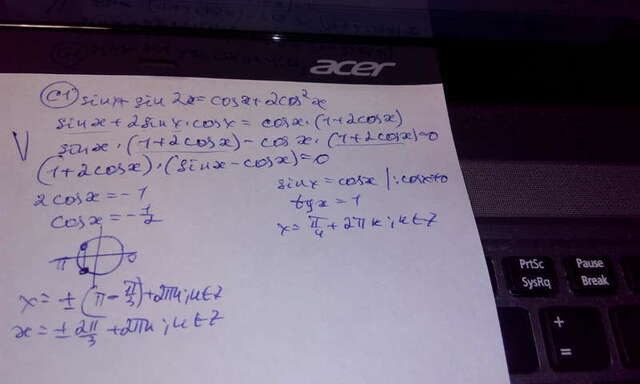 acer
C1 sinx+sin 2x=cosx+2cos²x
sinx+2sinx·cosx=cosx·(1+2cosx)
sinx·(1+2cosx)-cosx·(1+2cosx)=0
(1+2cosx)·(sinx-cosx)=0
2cosx=-1
cosx=-1/2
π 0
x=±(π-π/3)+2πk; k∈Z
x=±2π/3+2πk; k∈Z
sinx=cosx |:cosx≠0
tgx=1
x=π/4+2πk; k∈Z
PrtSc
SysRq
Pause
Break
+
=